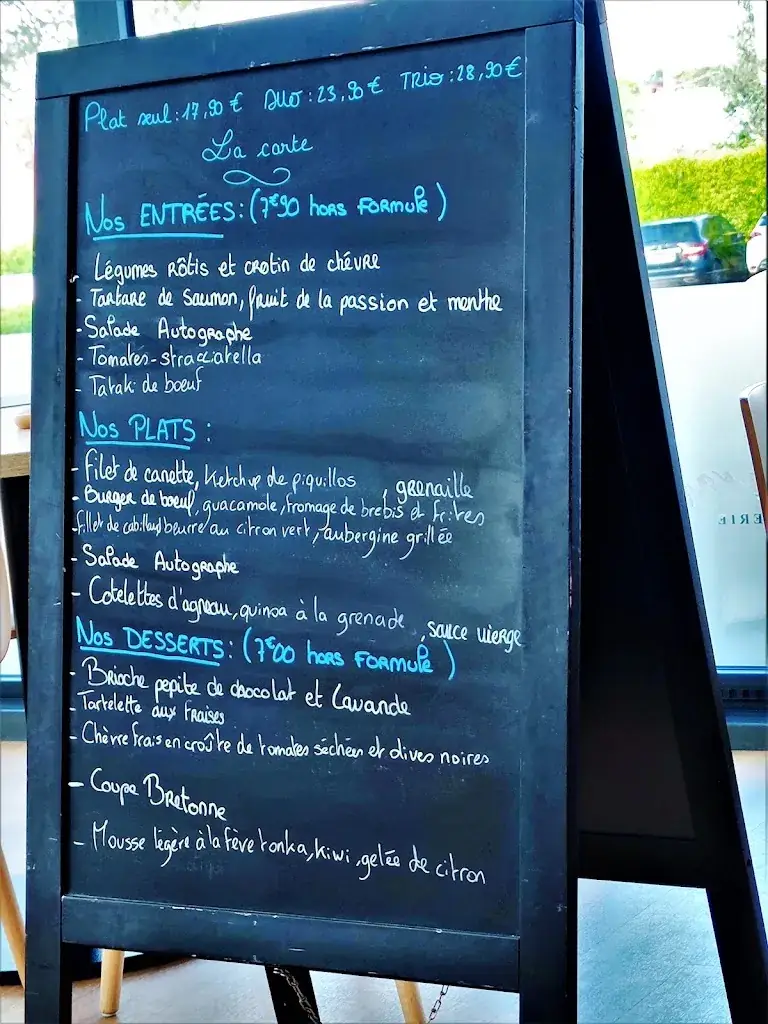 Plat seul : 17,90 € Duo : 23,90 € Trio : 28,90 €
La carte
Nos ENTRÉES : (7€90 hors FORMULE)
- Légumes rôtis et crotin de chévre
- Tartare de saumon, fruit de la passion et menthe
- Salade Autographe
- Tomates-straciatella
- Tataki de boeuf
Nos PLATS :
- Filet de canette, ketchup de piquillos , grenaille
- Burger de boeuf, guacamole, fromage de brebis et frites
- fillet de cabillaud beurre au citron vert, aubergine grillée
- Salade Autographe
- Cotelettes d'agneau, quinoa à la grenade , sauce vierge
Nos DESSERTS : (7€00 hors FORMULE)
- Brioche pepite de chocolat et Lavande
- Tartelette aux fraises
- Chèvre frais en croûte de tomates séchées et olives noires
- Coupe Bretonne
- Mousse légère à la fève tonka, kiwi, gelée de citron